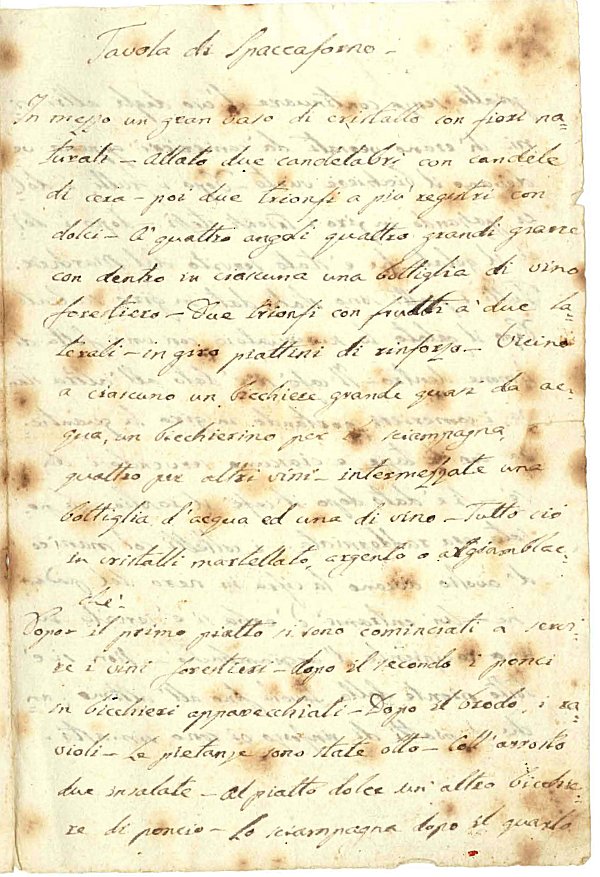 Tavola di Spaccaforno -
In mezzo un gran vaso di cristallo con fiori na=
turali - Allato due candelabri con candele
di cera - poi due trionfi a più registri con
dolci - A' quattro angoli quattro grandi grasse
con dentro in ciascuna una bottiglia di vino
forestiero - Due trionfi con frutti a' due la=
terali - in giro piattini di rinforzo - Vicino
a ciascuno un bicchiere grande quasi da ac=
qua, un bicchierino per lo sciampagna, e
quattro per altri vini - intermezzate una
bottiglia d'acqua ed una di vino - Tutto ciò
in cristalli martellato, argento o
chè -
Dopo il primo piatto si sono cominciati a servi=
re i vini forestieri - dopo il secondo i ponci
in bicchieri apparecchiati - Dopo il brodo, i ra=
violi - Le pietanze sono state otto - Coll'arrosto
due insalate - Al piatto dolce un altro bicchie=
re di poncio - Lo sciampagna dopo il quarto